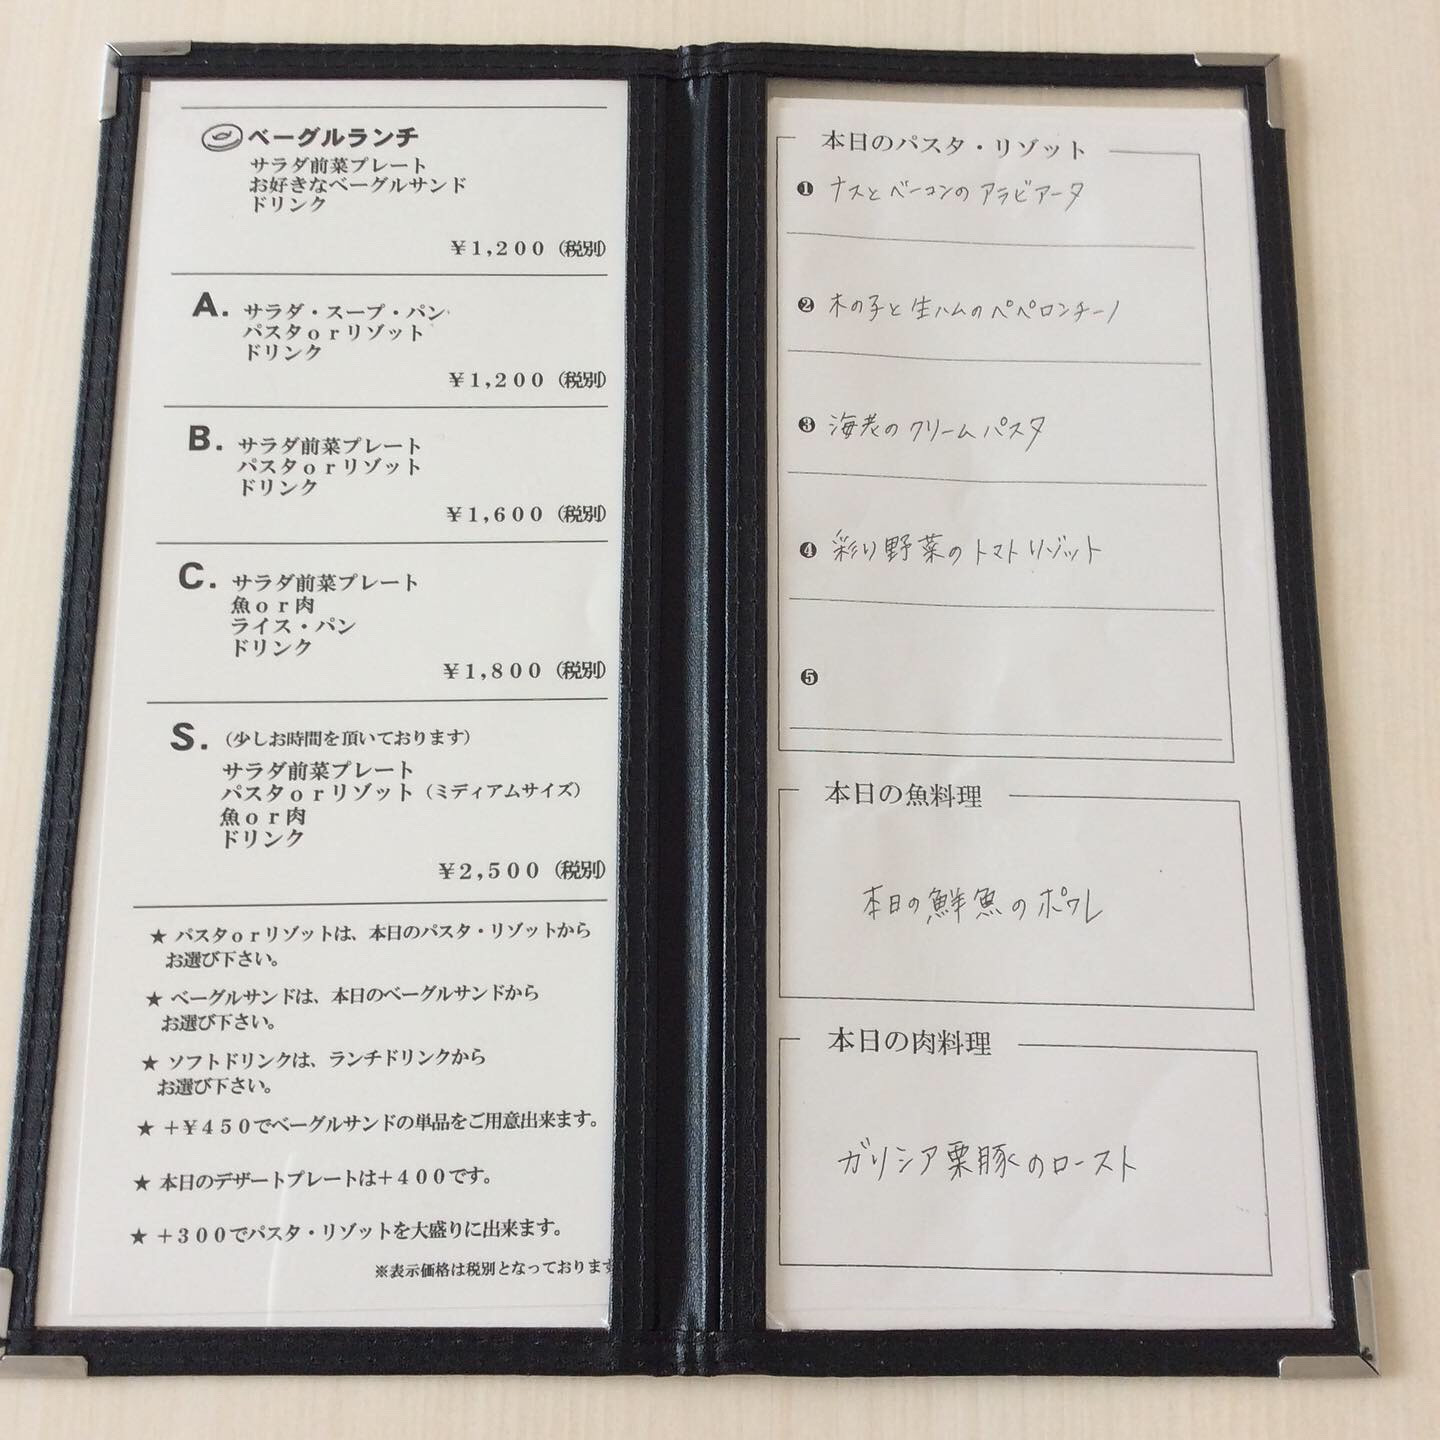 ベーグルランチ
サラダ前菜プレート
お好きなベーグルサンド
ドリンク
￥1,200（税別）
A. サラダ・スープ・パン
パスタorリゾット
ドリンク
￥1,200（税別）
B. サラダ前菜プレート
パスタorリゾット
ドリンク
￥1,600（税別）
C. サラダ前菜プレート
魚or肉
ライス・パン
ドリンク
￥1,800（税別）
S.（少しお時間を頂いております）
サラダ前菜プレート
パスタorリゾット（ミディアムサイズ）
魚or肉
ドリンク
￥2,500（税別）
★ パスタorリゾットは、本日のパスタ・リゾットから
お選び下さい。
★ ベーグルサンドは、本日のベーグルサンドから
お選び下さい。
★ ソフトドリンクは、ランチドリンクから
お選び下さい。
★ +￥450でベーグルサンドの単品をご用意出来ます。
★ 本日のデザートプレートは+400です。
★ +300でパスタ・リゾットを大盛りに出来ます。
※表示価格は税別となっております
本日のパスタ・リゾット
❶ ナスとベーコンのアラビアータ
❷ 木の子と生ハムのペペロンチーノ
❸ 海老のクリームパスタ
❹ 彩り野菜のトマトリゾット
❺
本日の魚料理
本日の鮮魚のポワレ
本日の肉料理
ガリシア栗豚のロースト